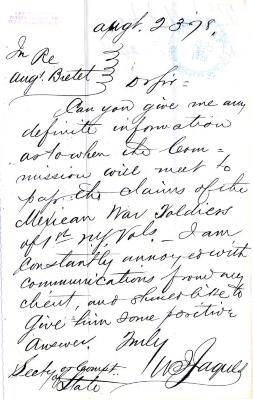 Augt. 23/78.
In Re
Augt Bretet
Dr Sir =
Can you give me any
definite information
as to when the Com-
mission will meet to
pass the claims of the
Mexican War Soldiers
of 1st N.Y. Vols. - I am
constantly annoyed with
communications from my
client, and should like to
give him some positive
answer. Truly
W J Jaques
Secty of Compt.
State